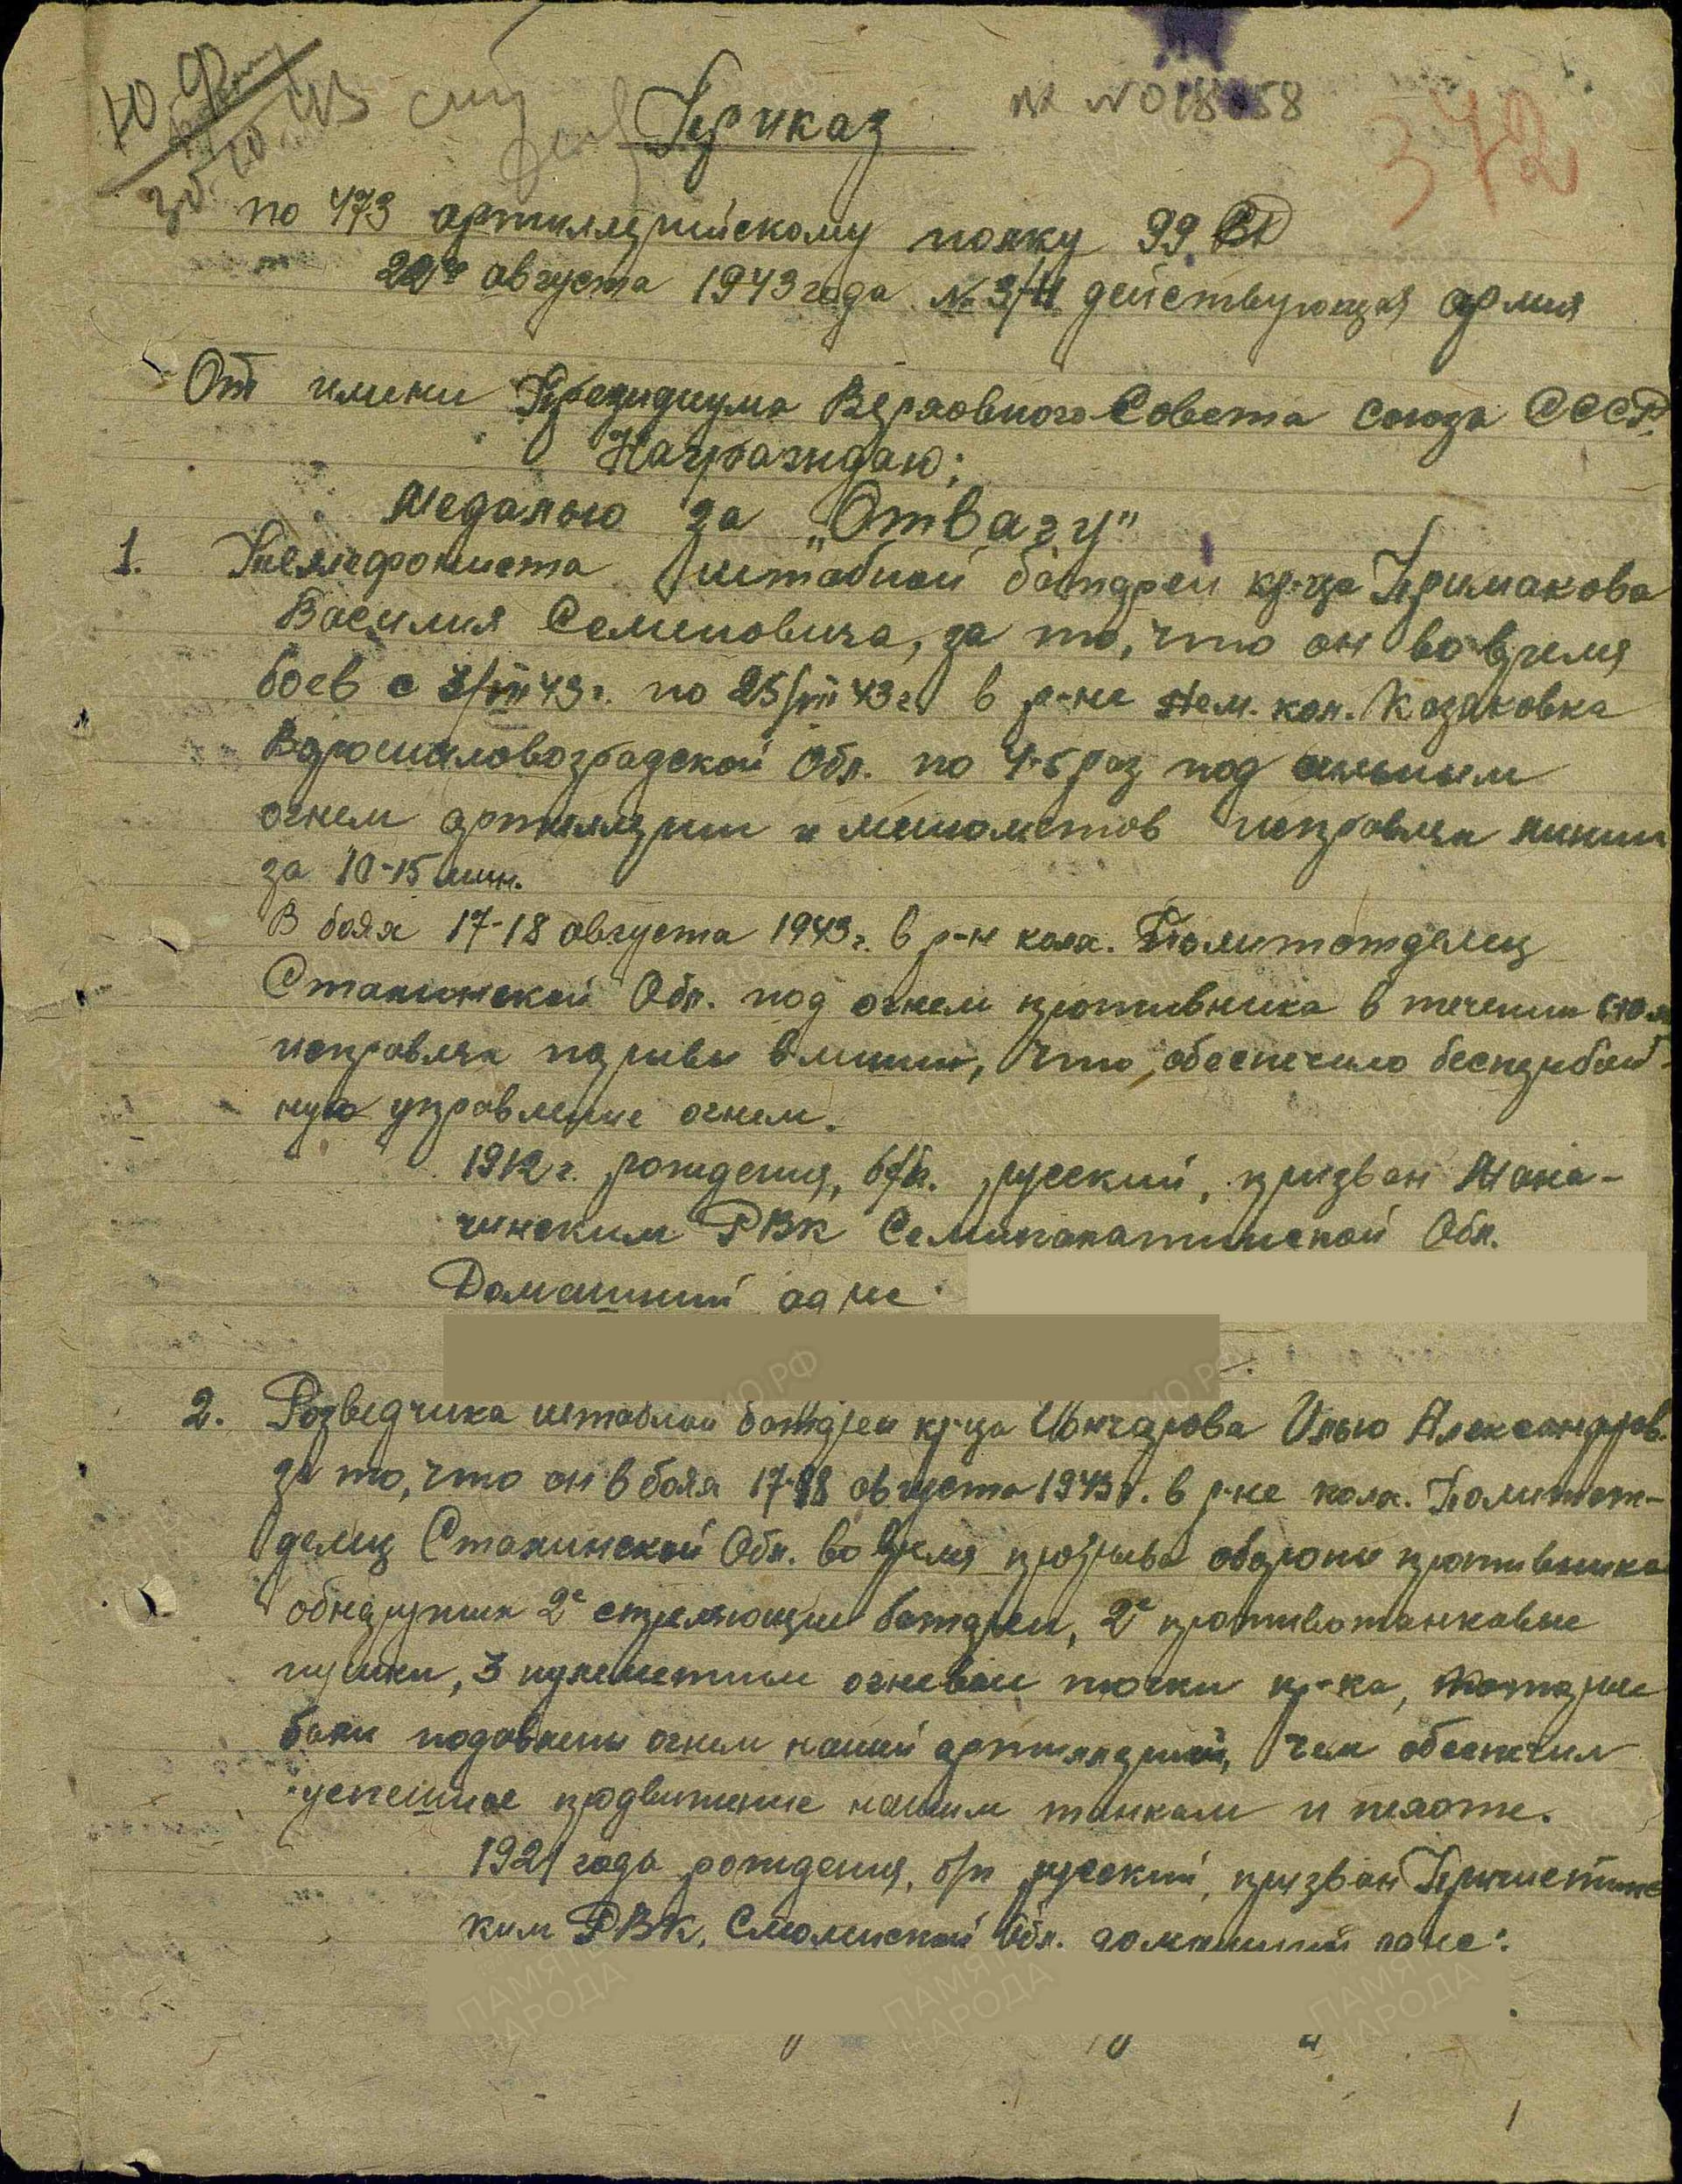 Приказ
по 473 артиллерийскому полку 99 СД
22го августа 1943 года №3/Н действующая армия
От имени Президиума Верховного Совета Союза СССР.
Награждаю:
Медалью за „Отвагу"
1. Телефониста штабной батареи кр-ца Примакова
Василия Семеновича, за то, что он во время
боев с 3/III 43г. по 25/III 43г. в р-не Нем. кол. Казаковка
Ворошиловоградской Обл. по 4-5 раз под сильным
огнем артиллерии и минометов исправлял линии
за 10-15 мин.
В боях 17-18 августа 1943г. в р-н колх. Политотделец
Сталинской Обл. под огнем противника в течении
исправлял порывы линии, что обеспечило бесперебой-
ную управление огнем.
1912г. рождения, б/п. русский, призван Жана-
чинским РВК Семипалатинской Обл.
Домашний адрес
2. Разведчика штабной батареи кр-ца Илью Александров.
за то, что он в боях 17-18 августа 1943г. в р-не колх. Политот-
делец Сталинской Обл. во время прорыва обороны противника
обнаружил 2е стреляющие батареи, 2е противотанковые
пушки, 3 пулеметные огневые точки пр-ка, которые
были подавлены огнем нашей артиллерии, чем обеспечил
успешное продвижение нашим танкам и пехоте.
1921 года рождения, б/п русский, призван Пречистинс
ким РВК, Смоленской Обл. домашний адрес:
372